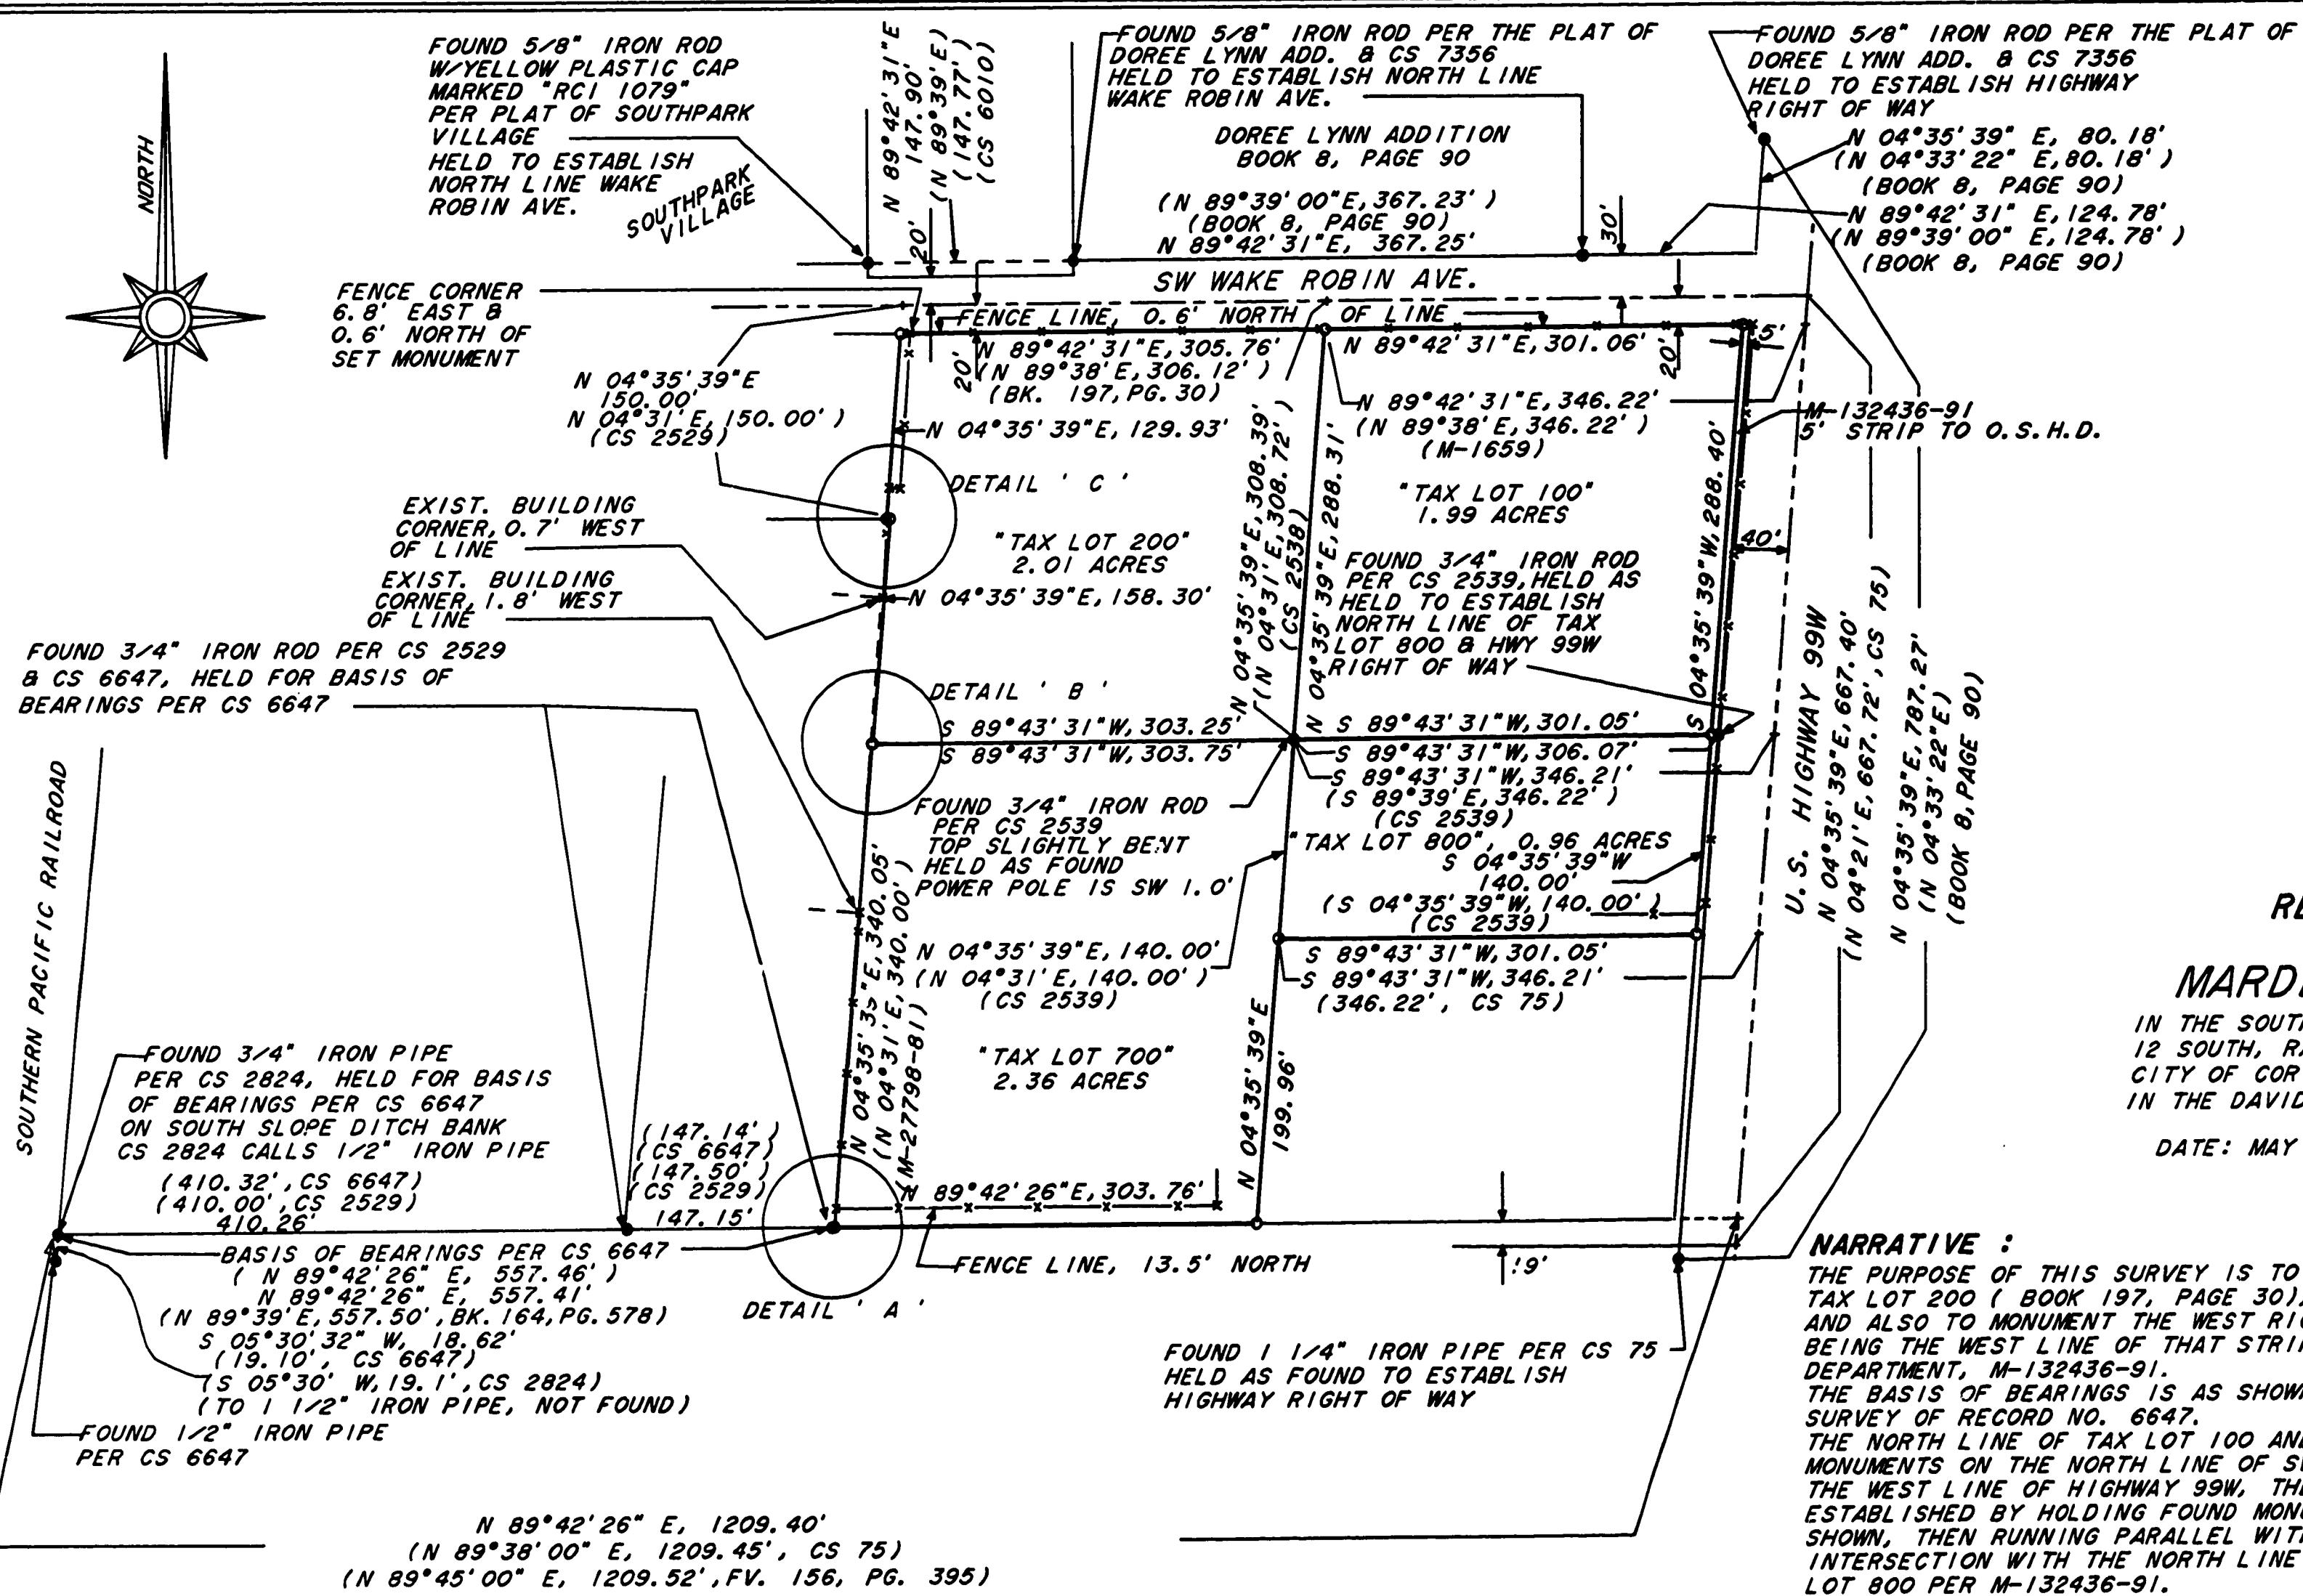 NORTH
FOUND 5/8" IRON ROD
W/YELLOW PLASTIC CAP
MARKED "RCI 1079"
PER PLAT OF SOUTHPARK
VILLAGE
HELD TO ESTABLISH
NORTH LINE WAKE
ROBIN AVE.
SOUTHPARK
VILLAGE
N 89°42'31"E
147.90'
(N 89°39'E)
(147.77')
(CS 6010)
20'
FOUND 5/8" IRON ROD PER THE PLAT OF
DOREE LYNN ADD. & CS 7356
HELD TO ESTABLISH NORTH LINE
WAKE ROBIN AVE.
DOREE LYNN ADDITION
BOOK 8, PAGE 90
(N 89°39'00"E,367.23')
(BOOK 8, PAGE 90)
N 89°42'31"E, 367.25'
30'
FOUND 5/8" IRON ROD PER THE PLAT OF
DOREE LYNN ADD. & CS 7356
HELD TO ESTABLISH HIGHWAY
RIGHT OF WAY
N 04°35'39" E, 80.18'
(N 04°33'22" E,80.18')
(BOOK 8, PAGE 90)
N 89°42'31" E,124.78'
(N 89°39'00" E,124.78')
(BOOK 8, PAGE 90)
SW WAKE ROBIN AVE.
FENCE CORNER
6.8' EAST &
0.6' NORTH OF
SET MONUMENT
FENCE LINE, 0.6' NORTH OF LINE
N 89°42'31"E,305.76'
(N 89°38'E,306.12')
(BK. 197,PG.30)
20'
N 89°42'31"E,301.06'
20'
5'
N 04°35'39"E
150.00'
N 04°31'E,150.00')
(CS 2529)
N 04°35'39"E,129.93'
N 89°42'31"E,346.22'
(N 89°38'E,346.22')
(M-1659)
M-132436-91
5' STRIP TO O.S.H.D.
DETAIL 'C'
"TAX LOT 200"
2.01 ACRES
"TAX LOT 100"
1.99 ACRES
EXIST. BUILDING
CORNER,0.7' WEST
OF LINE
EXIST. BUILDING
CORNER, 1.8' WEST
OF LINE
N 04°35'39"E,158.30'
N 04°35'39"E,308.39'
(N 04°31'E,308.72')
(CS 2538)
N 04°35'39"E,288.31'
FOUND 3/4" IRON ROD
PER CS 2539,HELD AS
HELD TO ESTABLISH
NORTH LINE OF TAX
LOT 800 & HWY 99W
RIGHT OF WAY
S 04°35'39"W,288.40'
40'
U.S. HIGHWAY 99W
N 04°35'39"E,667.40'
(N 04°21'E,667.72',CS 75)
N 04°35'39"E,787.27'
(N 04°33'22"E)
(BOOK 8,PAGE 90)
FOUND 3/4" IRON ROD PER CS 2529
& CS 6647, HELD FOR BASIS OF
BEARINGS PER CS 6647
DETAIL 'B'
S 89°43'31"W,303.25'
S 89°43'31"W,303.75'
S 89°43'31"W,301.05'
S 89°43'31"W,306.07'
S 89°43'31"W,346.21'
(S 89°39'E,346.22')
(CS 2539)
FOUND 3/4" IRON ROD
PER CS 2539
TOP SLIGHTLY BENT
HELD AS FOUND
POWER POLE IS SW 1.0'
"TAX LOT 800", 0.96 ACRES
S 04°35'39"W
140.00'
(S 04°35'39"W,140.00')
(CS 2539)
SOUTHERN PACIFIC RAILROAD
N 04°35'35"E,340.05'
(N 04°31'E,340.00')
(M-27798-81)
N 04°35'39"E,140.00'
(N 04°31'E,140.00')
(CS 2539)
S 89°43'31"W,301.05'
S 89°43'31"W,346.21'
(346.22', CS 75)
"TAX LOT 700"
2.36 ACRES
N 04°35'39"E
199.96'
FOUND 3/4" IRON PIPE
PER CS 2824, HELD FOR BASIS
OF BEARINGS PER CS 6647
ON SOUTH SLOPE DITCH BANK
CS 2824 CALLS 1/2" IRON PIPE
(410.32',CS 6647)
(410.00',CS 2529)
410.26'
(147.14')
(CS 6647)
(147.50')
(CS 2529)
147.15'
N 89°42'26"E,303.76'
BASIS OF BEARINGS PER CS 6647
(N 89°42'26" E, 557.46')
N 89°42'26" E, 557.41'
(N 89°39'E,557.50',BK.164,PG.578)
S 05°30'32" W, 18.62'
(19.10', CS 6647)
(S 05°30' W,19.1',CS 2824)
(TO 1 1/2" IRON PIPE, NOT FOUND)
FOUND 1/2" IRON PIPE
PER CS 6647
DETAIL 'A'
FENCE LINE, 13.5' NORTH
19'
FOUND 1 1/4" IRON PIPE PER CS 75
HELD AS FOUND TO ESTABLISH
HIGHWAY RIGHT OF WAY
N 89°42'26" E, 1209.40'
(N 89°38'00" E, 1209.45', CS 75)
(N 89°45'00" E, 1209.52',FV. 156, PG. 395)
IN THE
12 SOUTH,
CITY OF
IN THE
DATE: MAY
NARRATIVE :
THE PURPOSE OF THIS SURVEY IS TO
TAX LOT 200 ( BOOK 197, PAGE 30),
AND ALSO TO MONUMENT THE WEST
BEING THE WEST LINE OF THAT
DEPARTMENT, M-132436-91.
THE BASIS OF BEARINGS IS AS
SURVEY OF RECORD NO. 6647.
THE NORTH LINE OF TAX LOT 100
MONUMENTS ON THE NORTH LINE OF
THE WEST LINE OF HIGHWAY 99W,
ESTABLISHED BY HOLDING FOUND
SHOWN, THEN RUNNING PARALLEL
INTERSECTION WITH THE NORTH LINE
LOT 800 PER M-132436-91.